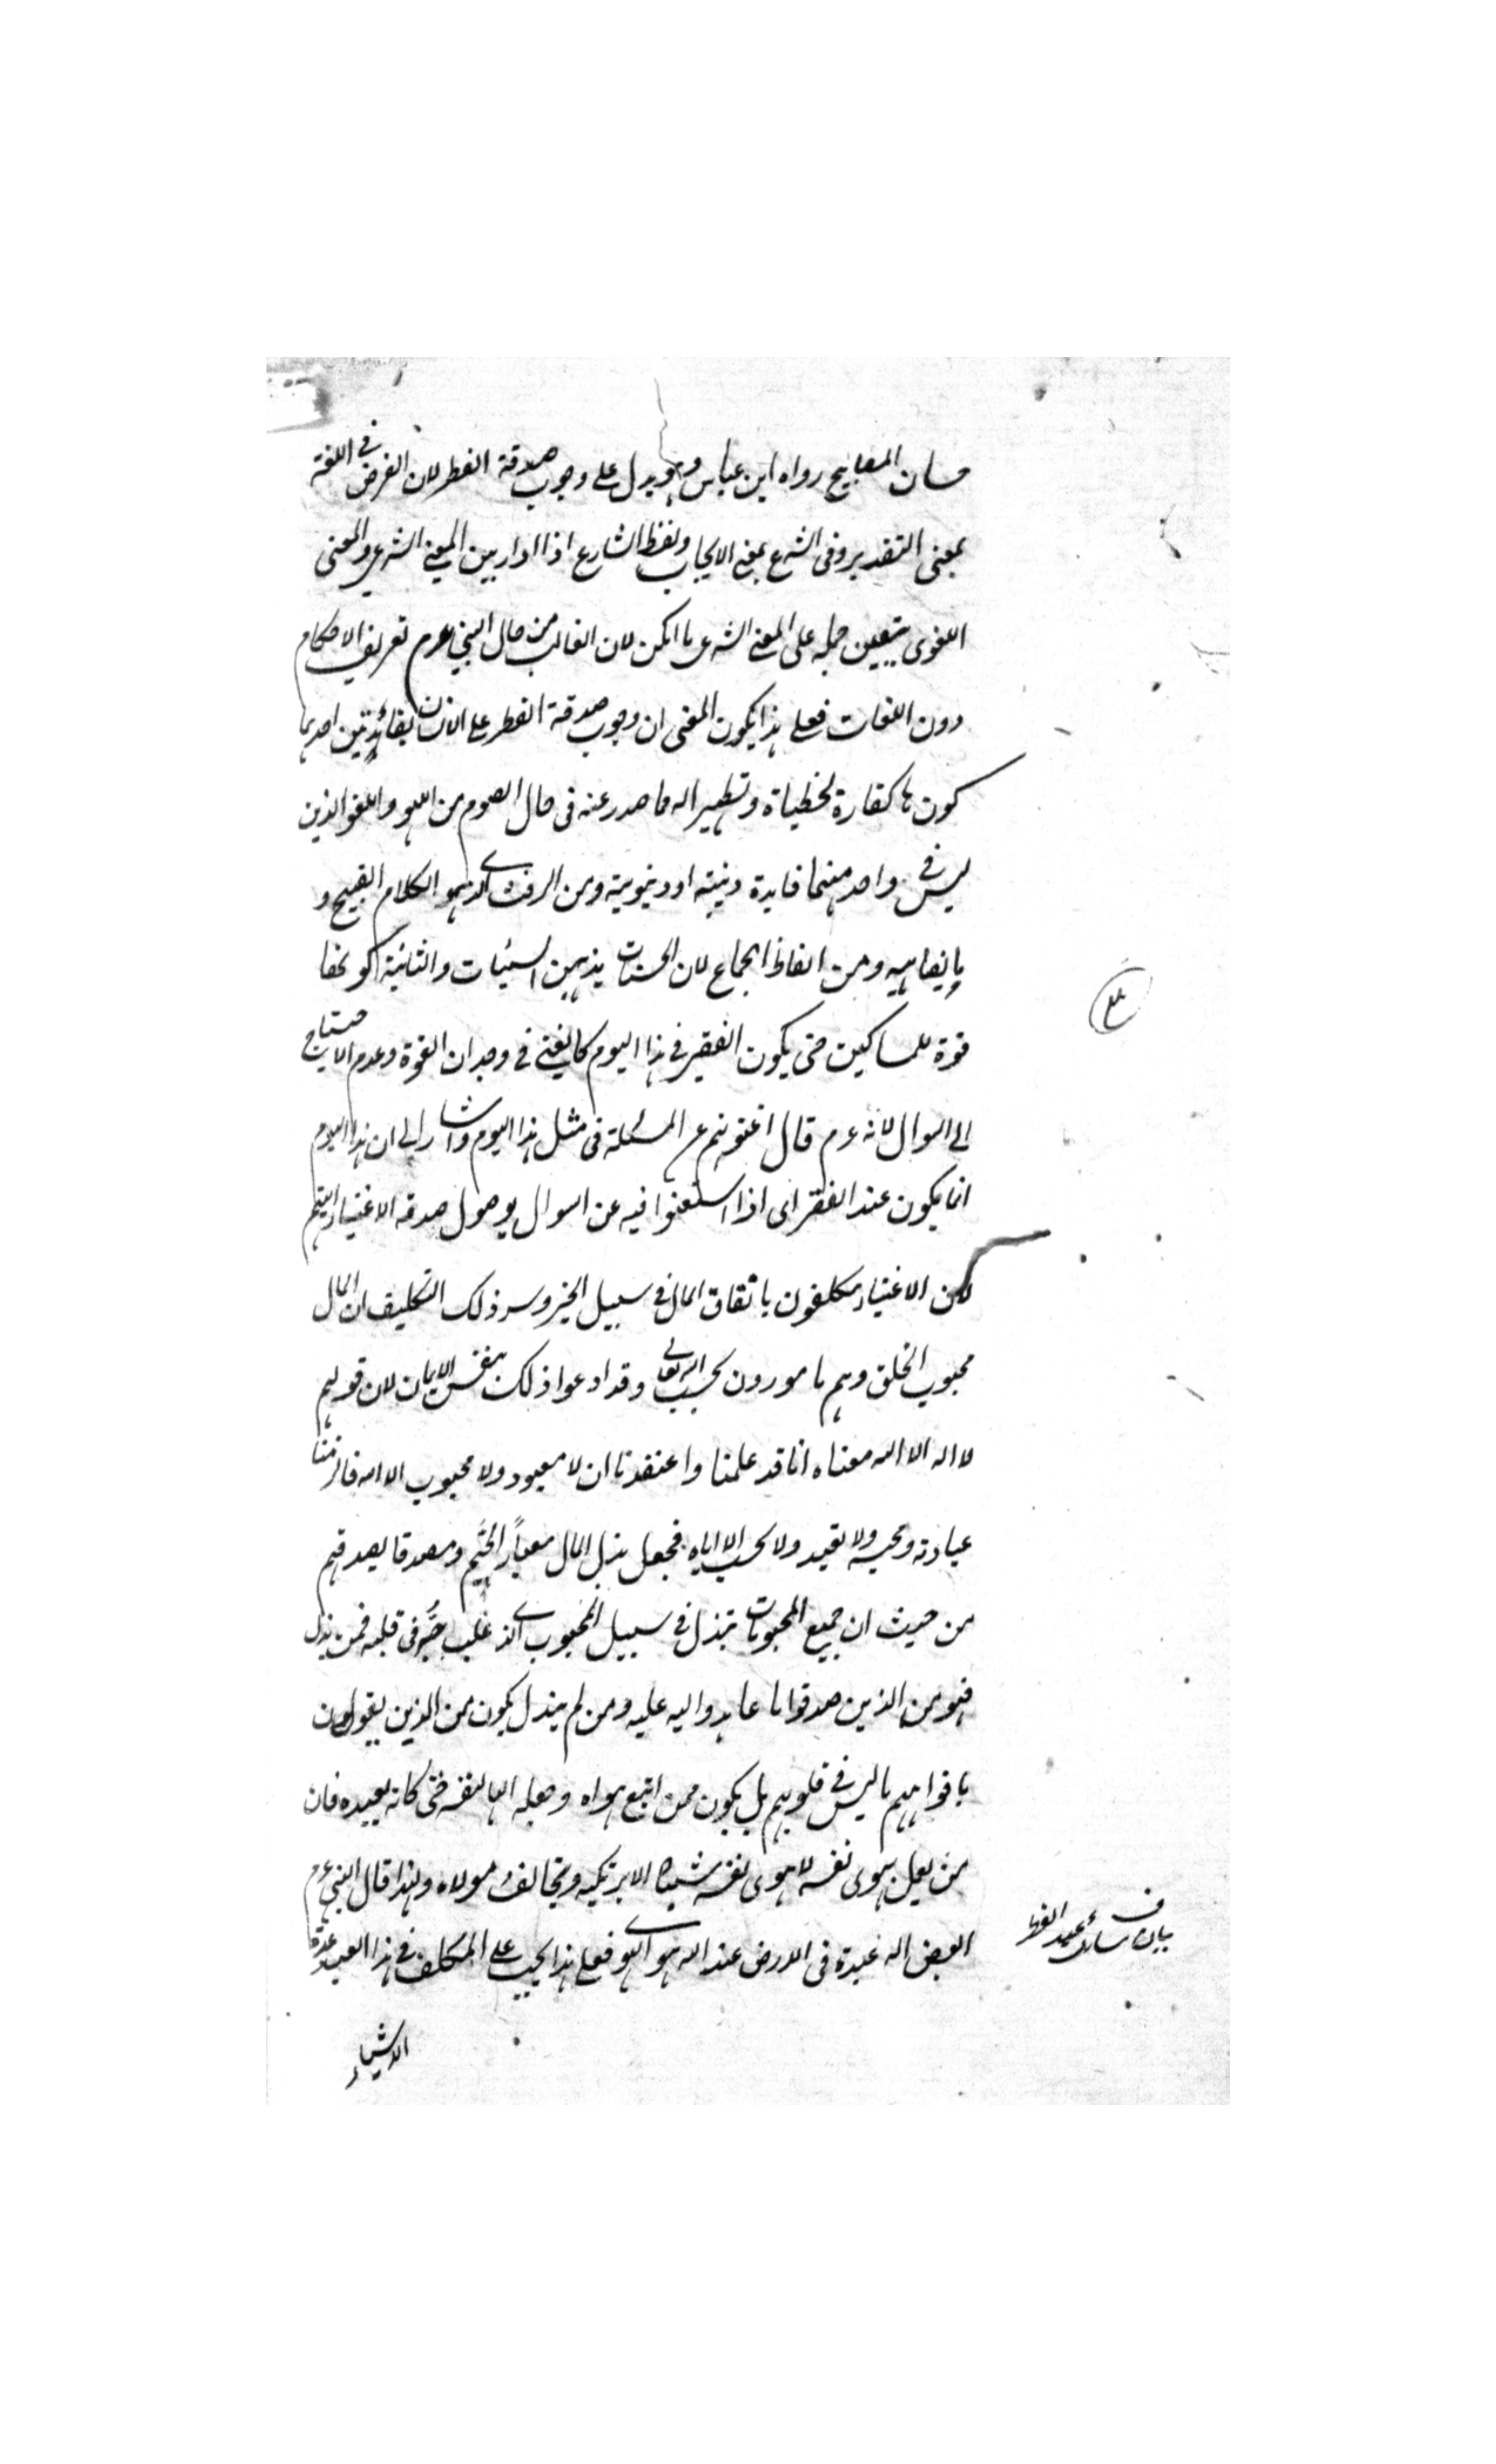 حسان المصابيح رواه ابن عباس وهو يدل على وجوب صدقة الفطر لان الفرض في اللغة
بمعنى التقدير وفى الشرع بمعنى الايجاب ولفظ الشارع اذا دار بين المعنى الشرعى والمعنى
اللغوى يتعين حمله على المعنى الشرعى ما امكن لان الغالب من حال النبي عرم تعريف الاحكام
دون اللغات فعلى هذا يكون المعنى ان وجوب صدقة الفطر على الانسان لفائدتين احديهما
كونها كفارة لخطياة وتطهيرا له مما صدر عنه فى حال الصوم من اللهو واللغو الذين
ليس في واحد منهما فايدة دينية او دنيوية ومن الرفث الذى هو الكلام القبيح و
ما يضاهيه ومن الفاظ الجماع لان الحسنات يذهبن السيئات والثانية كونها
قوة للمساكين حتى يكون الفقير فى هذا اليوم كالغنى فى وجدان القوة وعدم الاحتياج
الى السوال لانه عرم قال اغنوهم عن المسئلة فى مثل هذا اليوم واشار الى ان هذا اليوم
انما يكون عند الفقراى اذا استغنوا فيه عن السوال بوصول صدقة الاغنياء اليهم
لان الاغنياء مكلفون بانفاق المال فى سبيل الخير وسر ذلك التكليف ان المال
محبوب الخلق وهم مامورون بحب الله تعالى وقد ادعوا ذلك بنفس الايمان لان قولهم
لا اله الا الله معناه انا قد علمنا واعتقدنا ان لا معبود ولا محبوب الا الله فالزمنا
عبادته ومحبته ولا نعبد ولا نحب الا اياه فجعل بذل المال معيارا لحبهم ومصدقا لصدقهم
من حيث ان جميع المحبوبات تبذل فى سبيل المحبوب الذى غلب حبه فى قلبه فمن بذل
فهو من الذين صدقوا ما عاهدوا الله عليه ومن لم يبذل يكون من الذين يقولون
بافواههم ما ليس فى قلوبهم بل يكون ممن اتبع هواه وجعله الها لنفسه حتى كانه يعبده فان
من يعمل بهوى نفسه لا يهوى نفسه شيئا الا يرتكبه ويخالف مولاه ولهذا قال النبي عرم
ابغض اله عبد فى الارض عند الله هو الهوى فعلى هذا يجب على المكلف فى هذا العيد عدة
بيان مسائل عيد الفطر
الاشياء